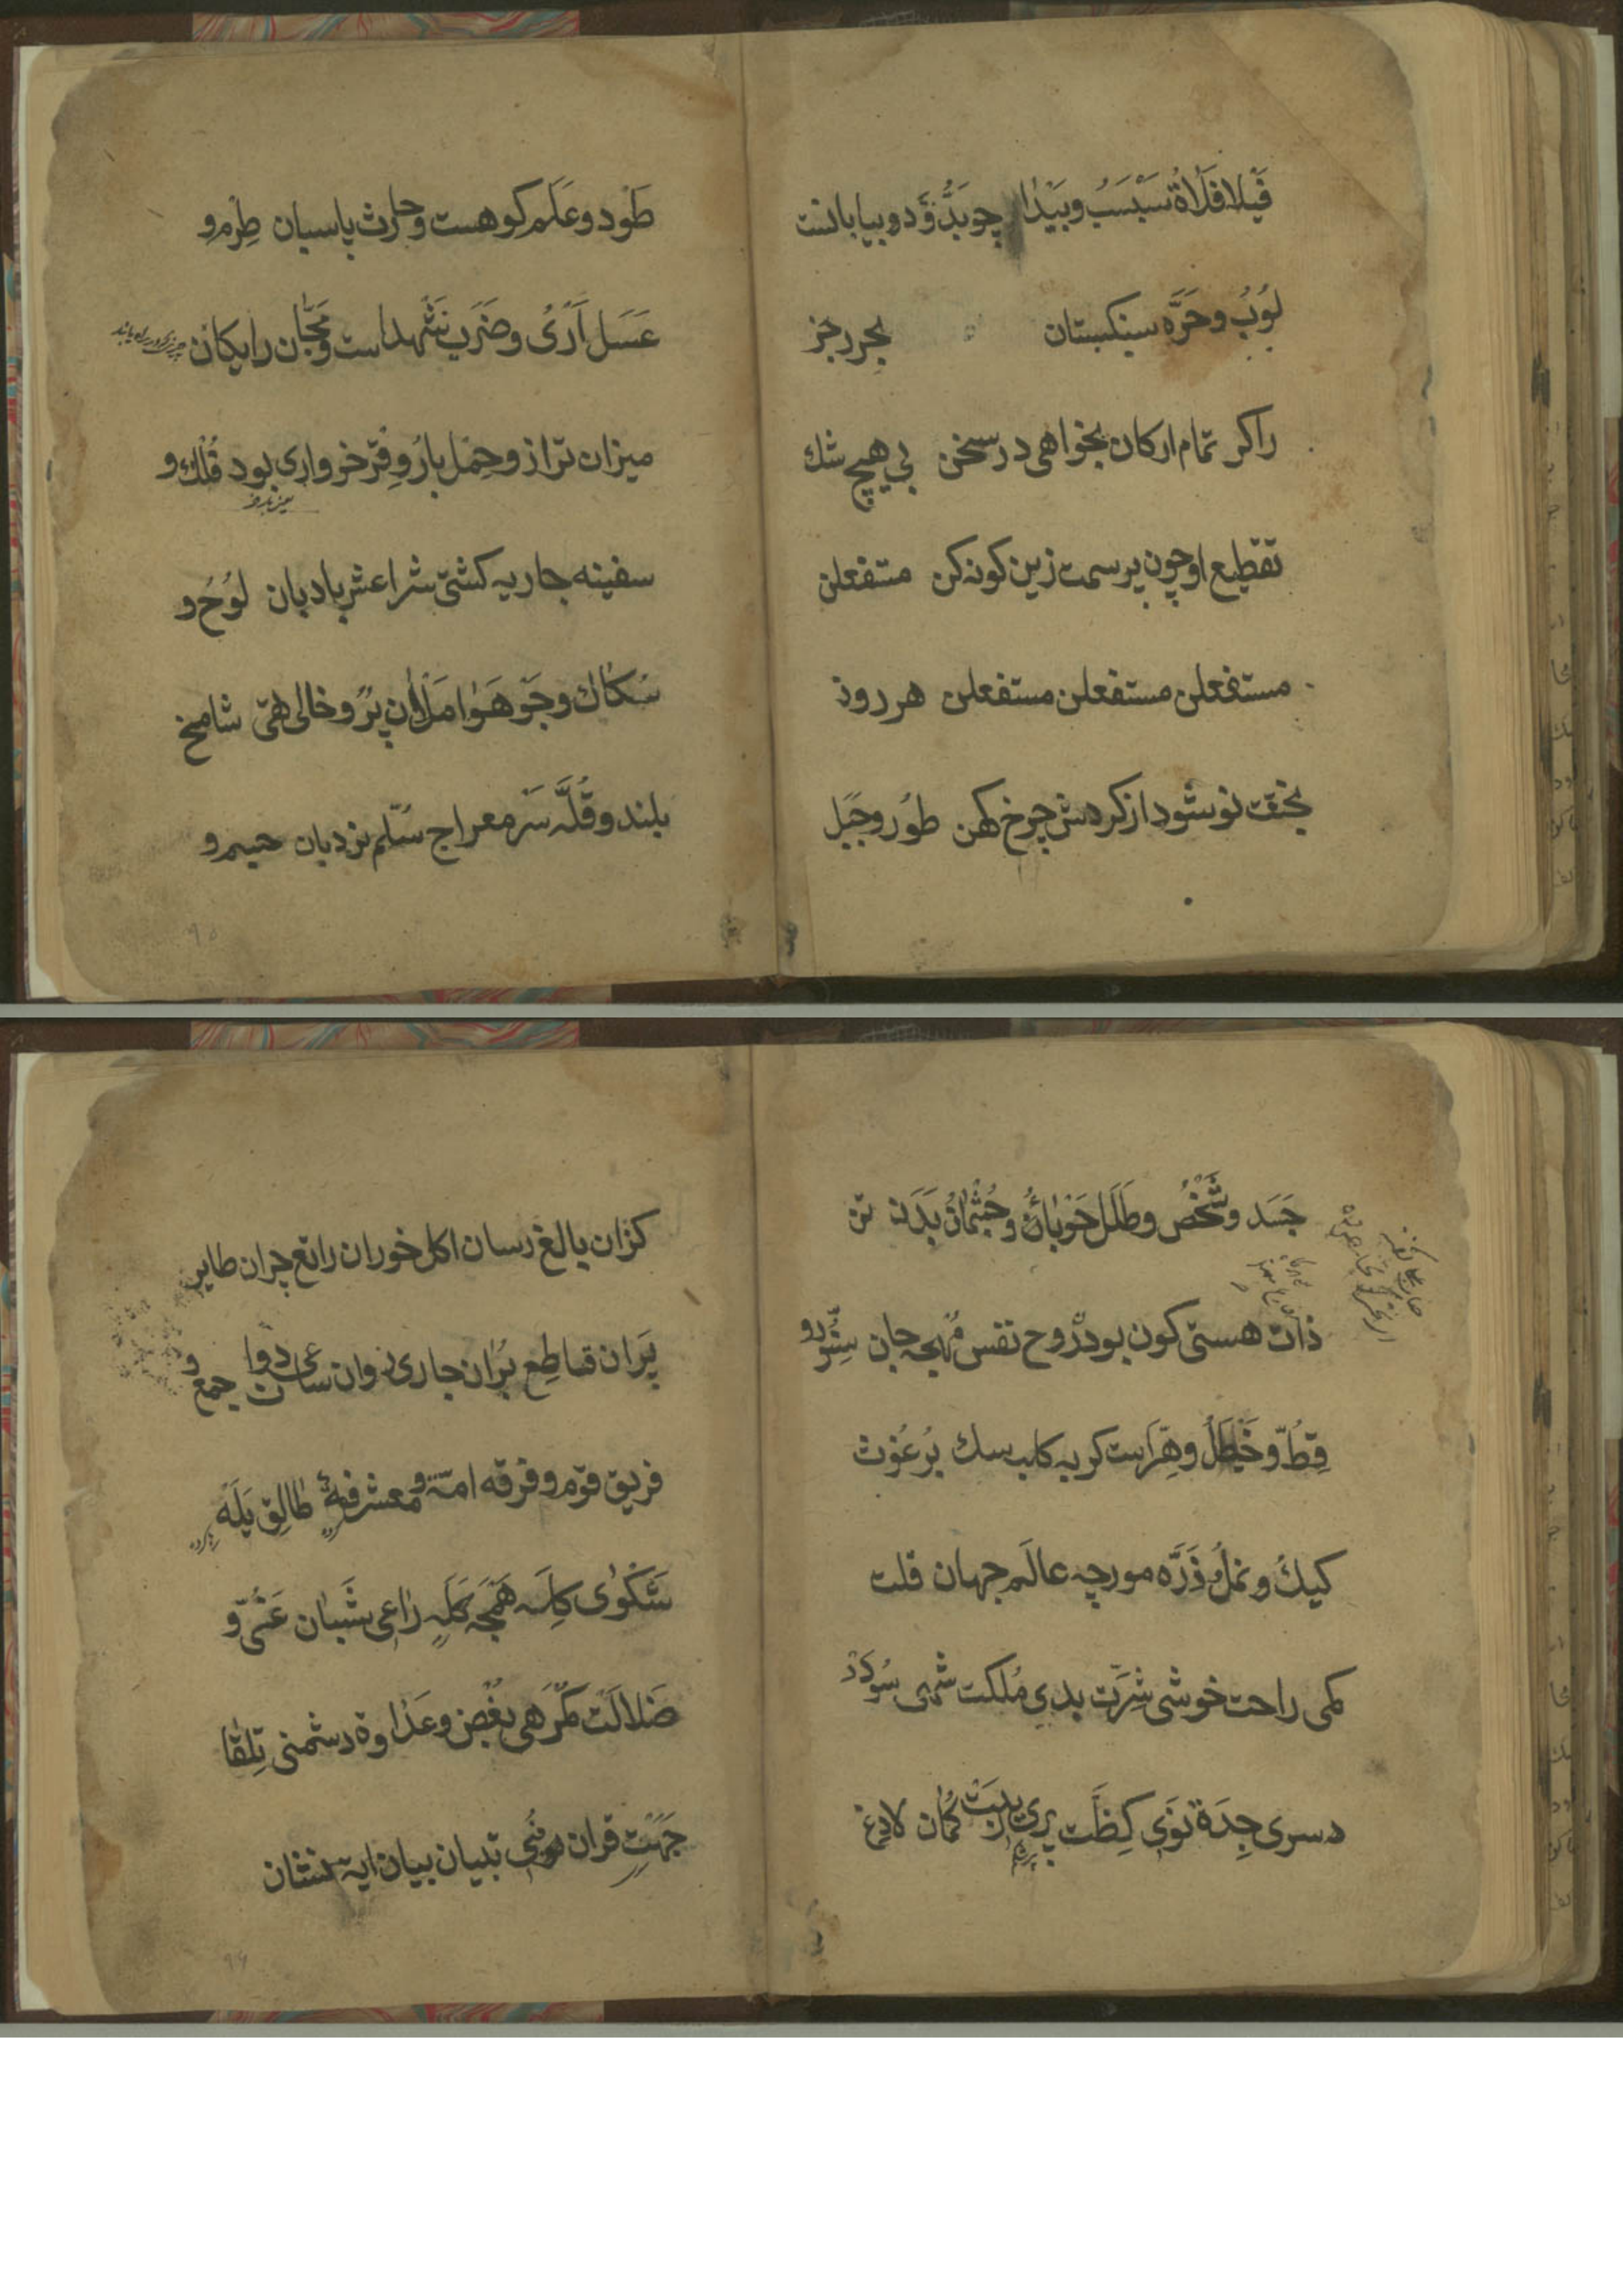 فَيْلا فَلاةْ سَبْسَبْ وبَيْدا چو بَدُّوْ دو بيابانست
لُوْبُ وحَرَّه سنكستان بحر رجز
را كر تمام اركان بخواهى در سخن بي هيچ شك
تقطيع او چون پرسمت زين كونه كن مستفعلن
مستفعلن مستفعلن مستفعلن هر روز
بختت نو شود از كردش چرخ كهن طُور وجَبَل
طَوْد وعَلَم كوهست وحارث پاسبان طِرْم و
عَسَل اَرْىُ وضَرَب شهد است ومَجّان رايكان
ميزان ترازو حِمْل بارُ وِقْر خروارى بود فُلك و
يعنى بار خر
سفينه جاريه كشتى شراعش بادبان لَوُحُ و
سُكاك وجَو هَوا مَلْأن پُر وخالى تهى شامخ
بلند وقُلَّه سَر معراج سُلّم نردبان جسم و
جَسَد وشَخْصُ وطَلَل حَوْباؤُ وجُثْمانُ بَدَن تن
ذات هستى كون بود روح نفس مُهجه جان سِنَّوْر و
قِطُّ وخَيْطَلُ وهِرّ است كربه كلب سك بُرغُوث
كيك و نملُ ذَرَّه مورچه عالَم جهان قلت
كمى راحت خوشى شِرَّت بدىِ مُلكت شهى سُودَدْ
سرى جِدَة نَوِى كِظَّت پرى رِيبَتْ كُمان لادِغ
كزان بالغ رسان اكل خوران راتع چران طاير
پَران قاطِع بُرّان جارى روان ساعى دوان جمع و
فريق قوم و فرقه امّة و معشر فِئَة طالِق يَلَه
شَكوْى كِلَه هَمْجَه كَلَه راعى شَبان غَىُّ و
ضَلالَت كمْرَهى بُغْض وعَداوة دشمنى تِلقا
جَهَت قران نُبى تبيان بيان ايه نشان